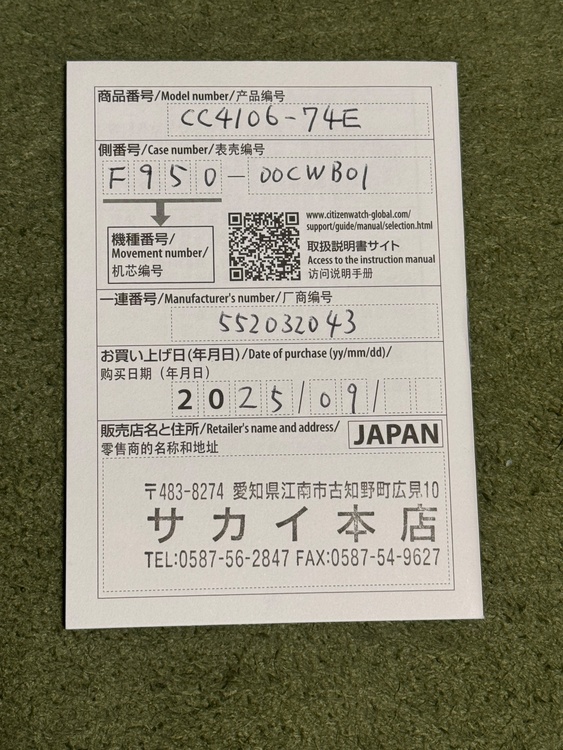 商品番号/Model number/产品编号
CC4106-74E
側番号/Case number/表壳编号
F950-00CWB01
機種番号/
Movement number/
机芯编号
www.citizenwatch-global.com/
support/guide/manual/selection.html
取扱説明書サイト
Access to the instruction manual
访问说明手册
一連番号/Manufacturer's number/厂商编号
552032043
お買い上げ日(年月日)/Date of purchase (yy/mm/dd)/
购买日期（年月日）
2025/09/
販売店名と住所/Retailer's name and address/
零售商的名称和地址
JAPAN
〒483-8274 愛知県江南市古知野町広見10
サカイ本店
TEL:0587-56-2847 FAX:0587-54-9627